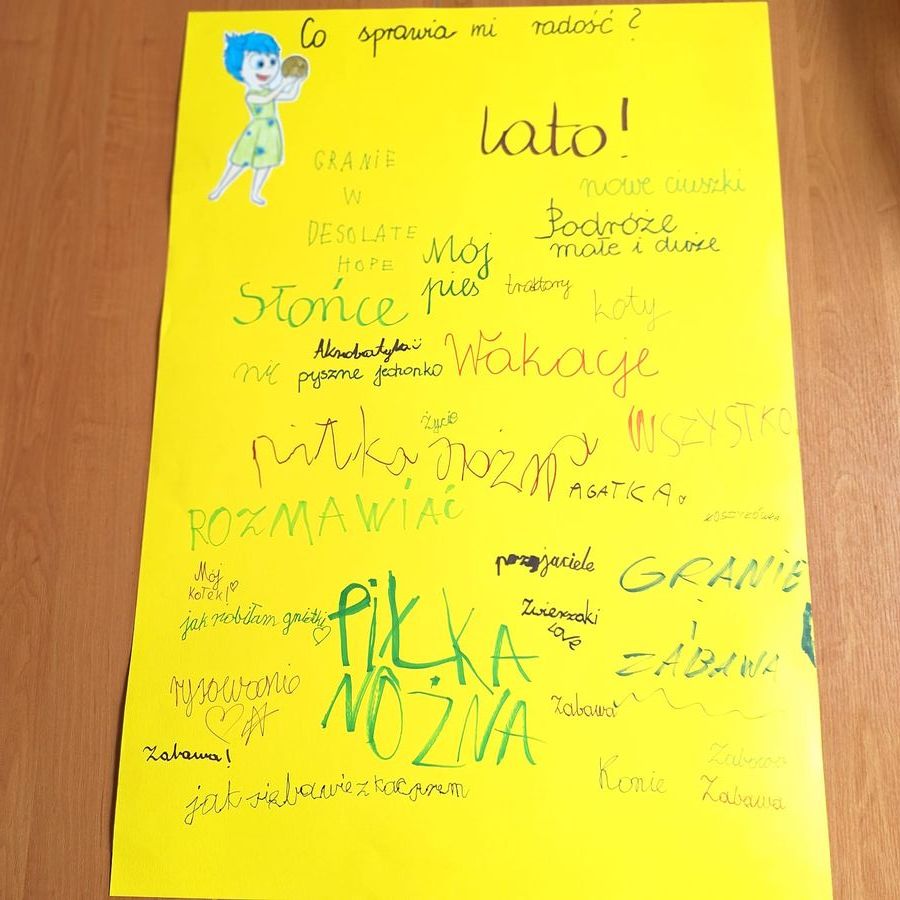 Co sprawia mi radość?
lato!
GRANIE
W
DESOLATE
HOPE
nowe ciuszki
Podróże
małe i duże
Mój
pies
traktory
Słońce
koty
Akrobatyka
nic
pyszne jedzonko
Wakacje
życie
piłka nożna
WSZYSTKO
AGATKA
ROZMAWIAĆ
KOSZYKÓWKA
przyjaciele
GRANIE
i
ZABAWA
Mój
kotek!
jak robiłam gniotki
PIŁKA
NOŻNA
Zwierzaki
Love
rysowanie
Zabawa
Zabawa!
jak się bawię z kacprem
Konie
Zabawa
Zabawa